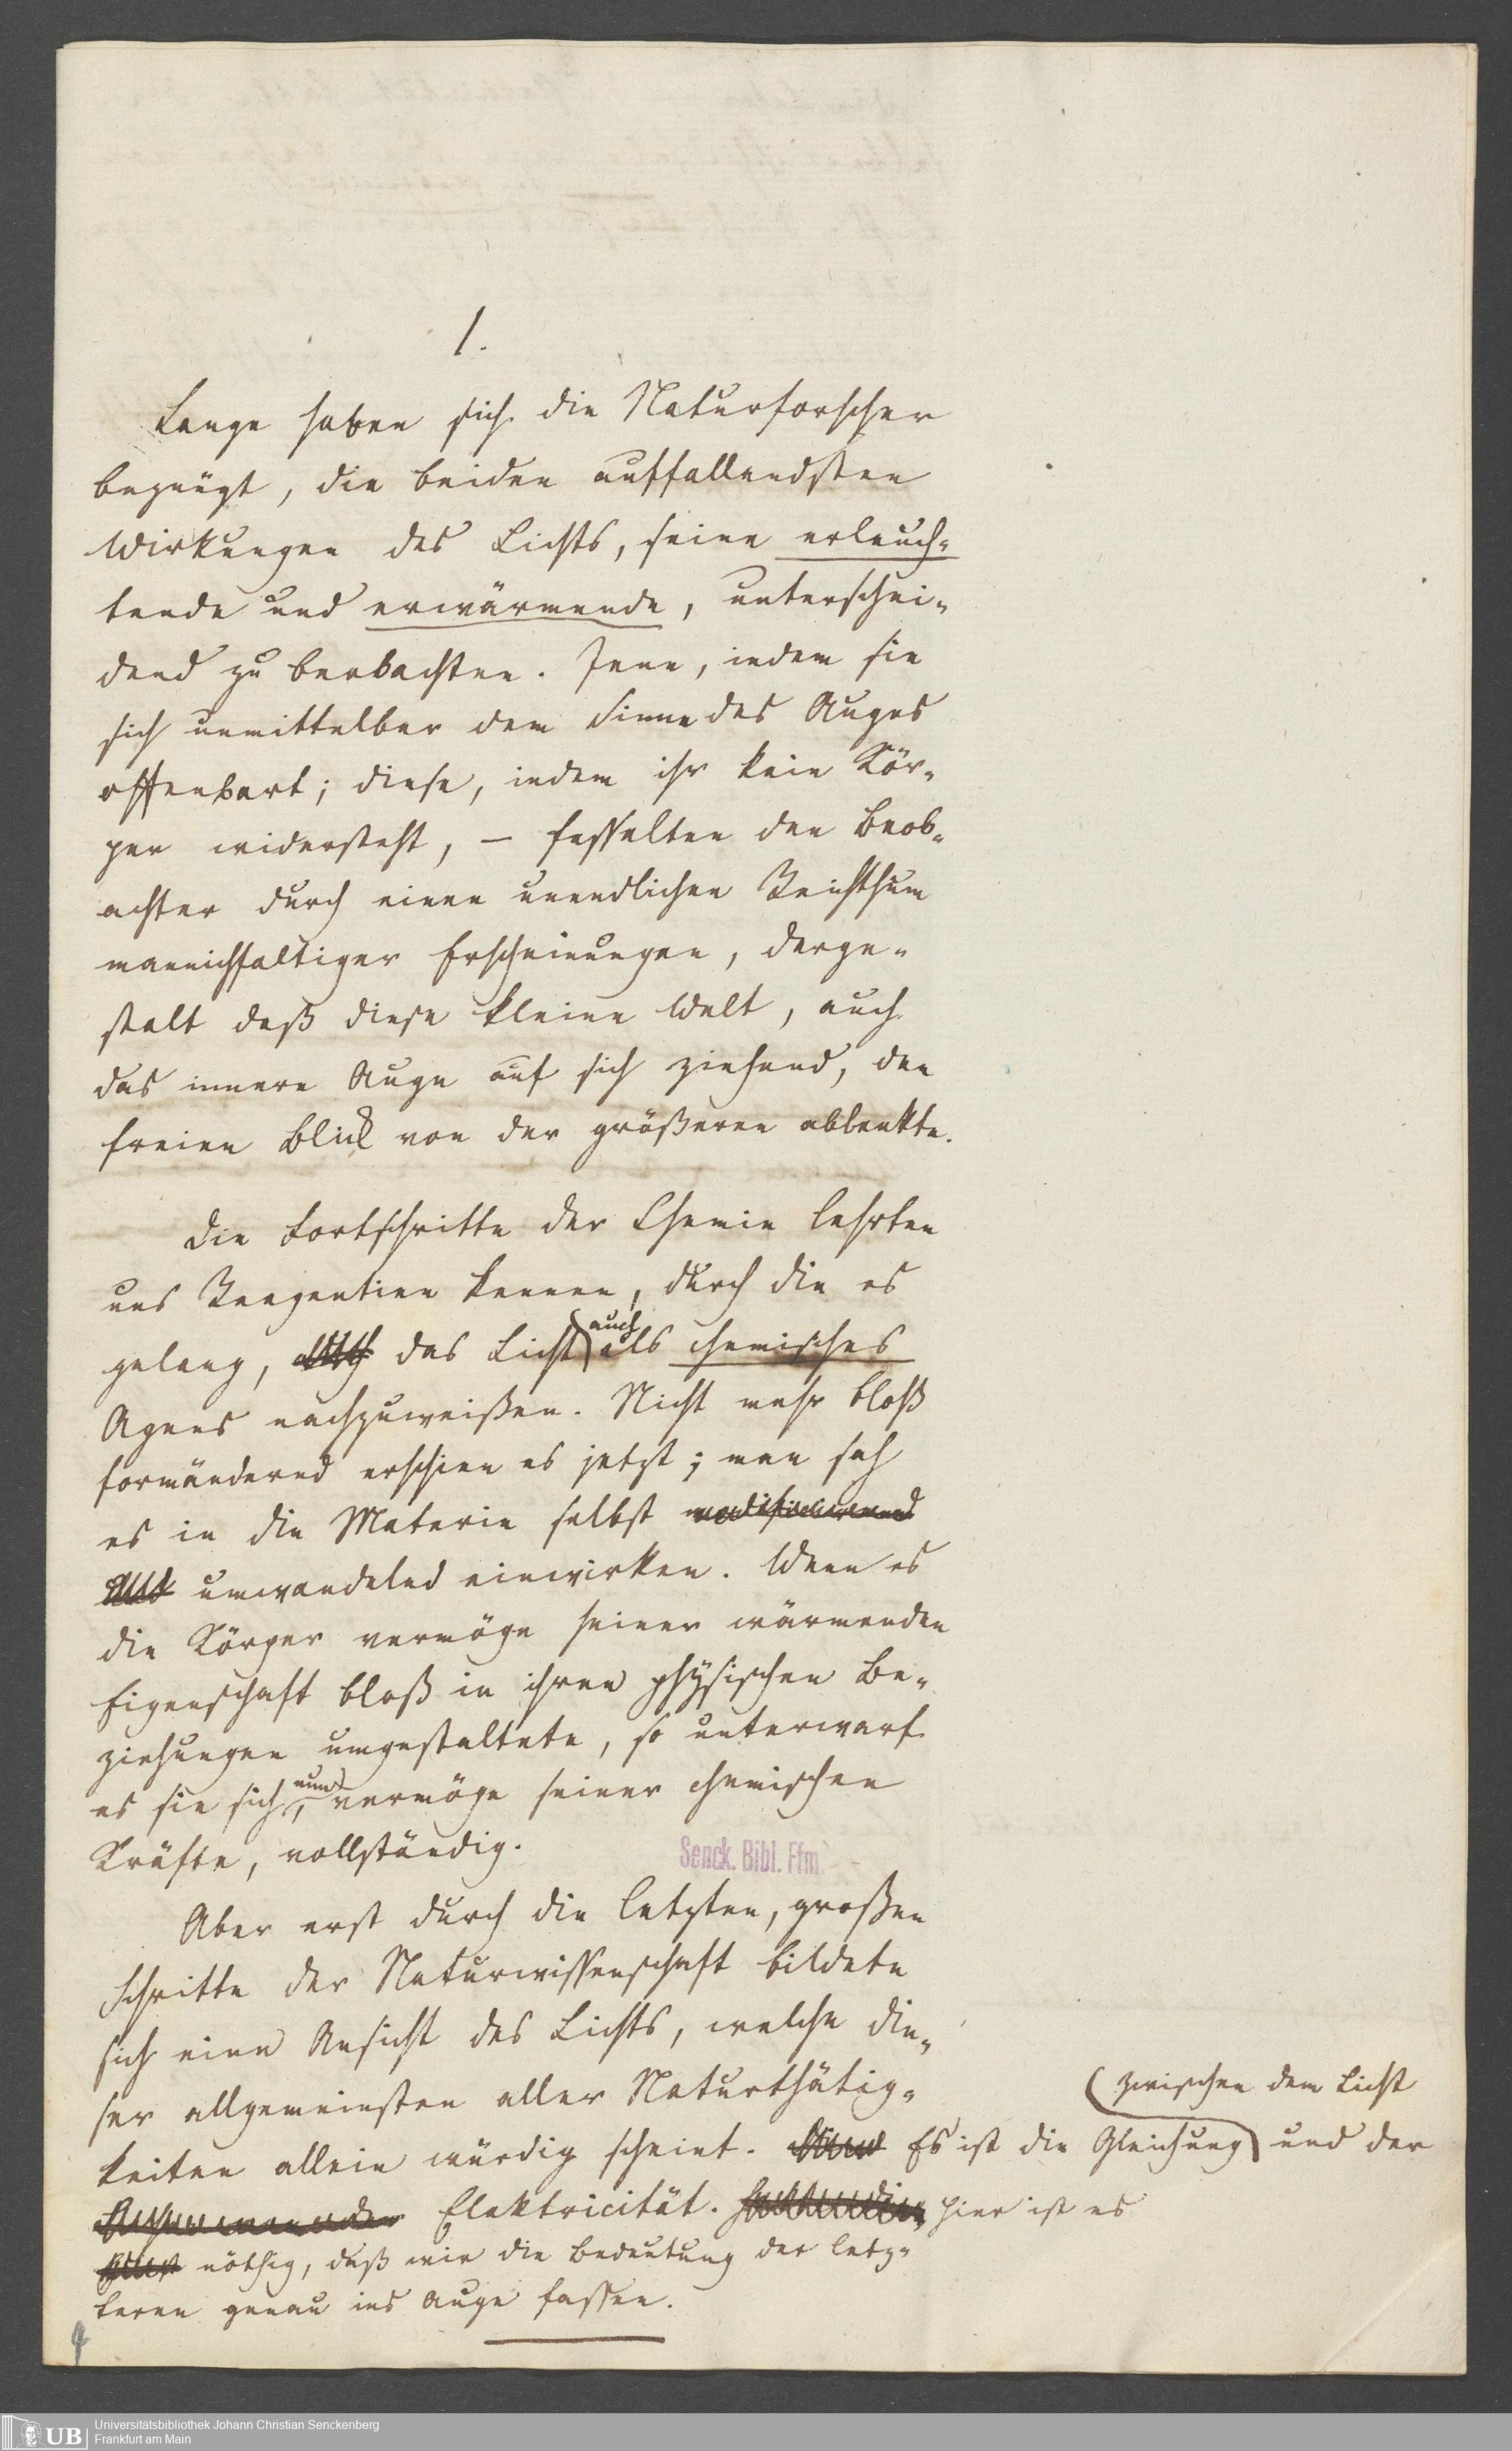 1.
Lange haben sich die Naturforscher
begnügt, die beiden auffallendsten
Wirkungen des Lichts, seine erleuch-
tende und erwärmende, unterschei-
dend zu beobachten. Jene, indem sie
sich unmittelbar dem Sinne des Auges
offenbart; diese, indem ihr kein Kör-
per widersteht, – fesselten den Beob-
achter durch einen unendlichen Reichthum
mannichfaltiger Erscheinungen, derge-
stalt daß diese kleine Welt, auch
das innere Auge auf sich ziehend, den
freien Blick von der größeren ablenkte.
Die Fortschritte der Chemie lehrten
uns Reagentien kennen, durch die es
gelang, das Licht auch als chemisches
Agens nachzuweißen. Nicht mehr bloß
formändernd erschien es jetzt; man sah
es in die Materie selbst modificirend
umwandelnd einwirken. Wenn es
die Körper vermöge seiner wärmenden
Eigenschaft bloß in ihren physischen Be-
ziehungen umgestaltete, so unterwarf
es sie sich nun, vermöge seiner chemischen
Kräfte, vollständig.
Senck. Bibl. Ffm.
Aber erst durch die letzten, großen
Schritte der Naturwissenschaft bildete
sich eine Ansicht des Lichts, welche die-
ser allgemeinsten aller Naturthätig-
keiten allein würdig scheint. Es ist die Gleichung zwischen dem Licht und der
Elektricität. hier ist es
nöthig, daß wir die Bedeutung der letz-
teren genau ins Auge fassen.
UB
Universitätsbibliothek Johann Christian Senckenberg
Frankfurt am Main